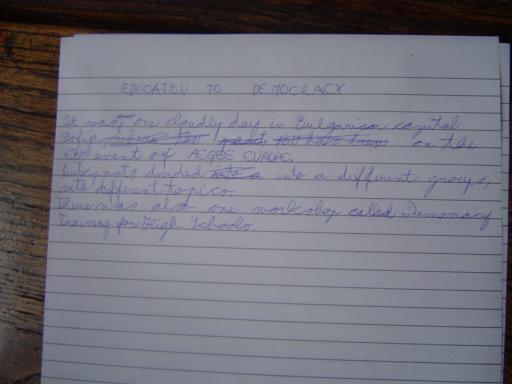 EDUCATION TO DEMOCRACY
It was one cloudly day in Bulgarian capital
Sofia on the
EBM event of AEGEE EUROPE.
divided into a different groups,
with different topics
There was also one workshop called Democracy
Training for High Schools